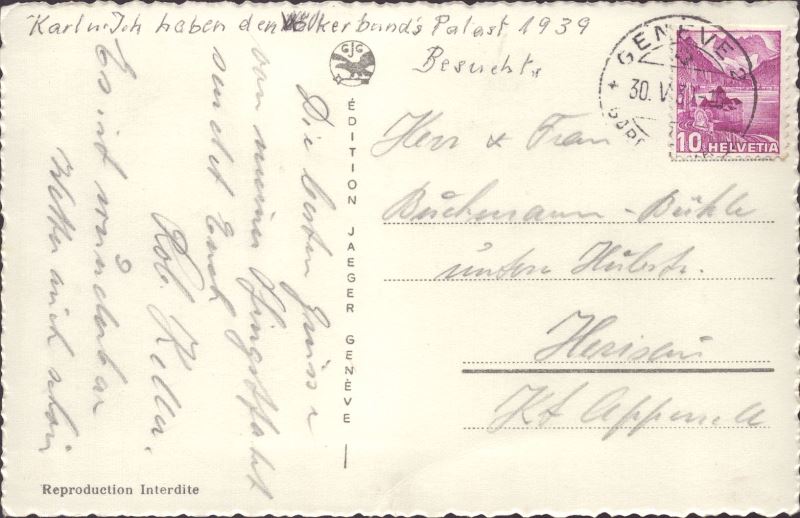 Karl u. Ich haben den Völkerbunds Palast 1939
Besucht.
Die besten Grüsse
von meiner Fingstfahrt
sendet Euch
Rob. Keller.
Es ist wunderbar
Wetter auch schön
GJG
ÉDITION JAEGER GENÈVE
GENÈVE 2
30. V. 3
10 HELVETIA
Herr & Frau
Buchmann-Bühle
untere Hubstr.
Herisau
Kt Appenzell
Reproduction Interdite